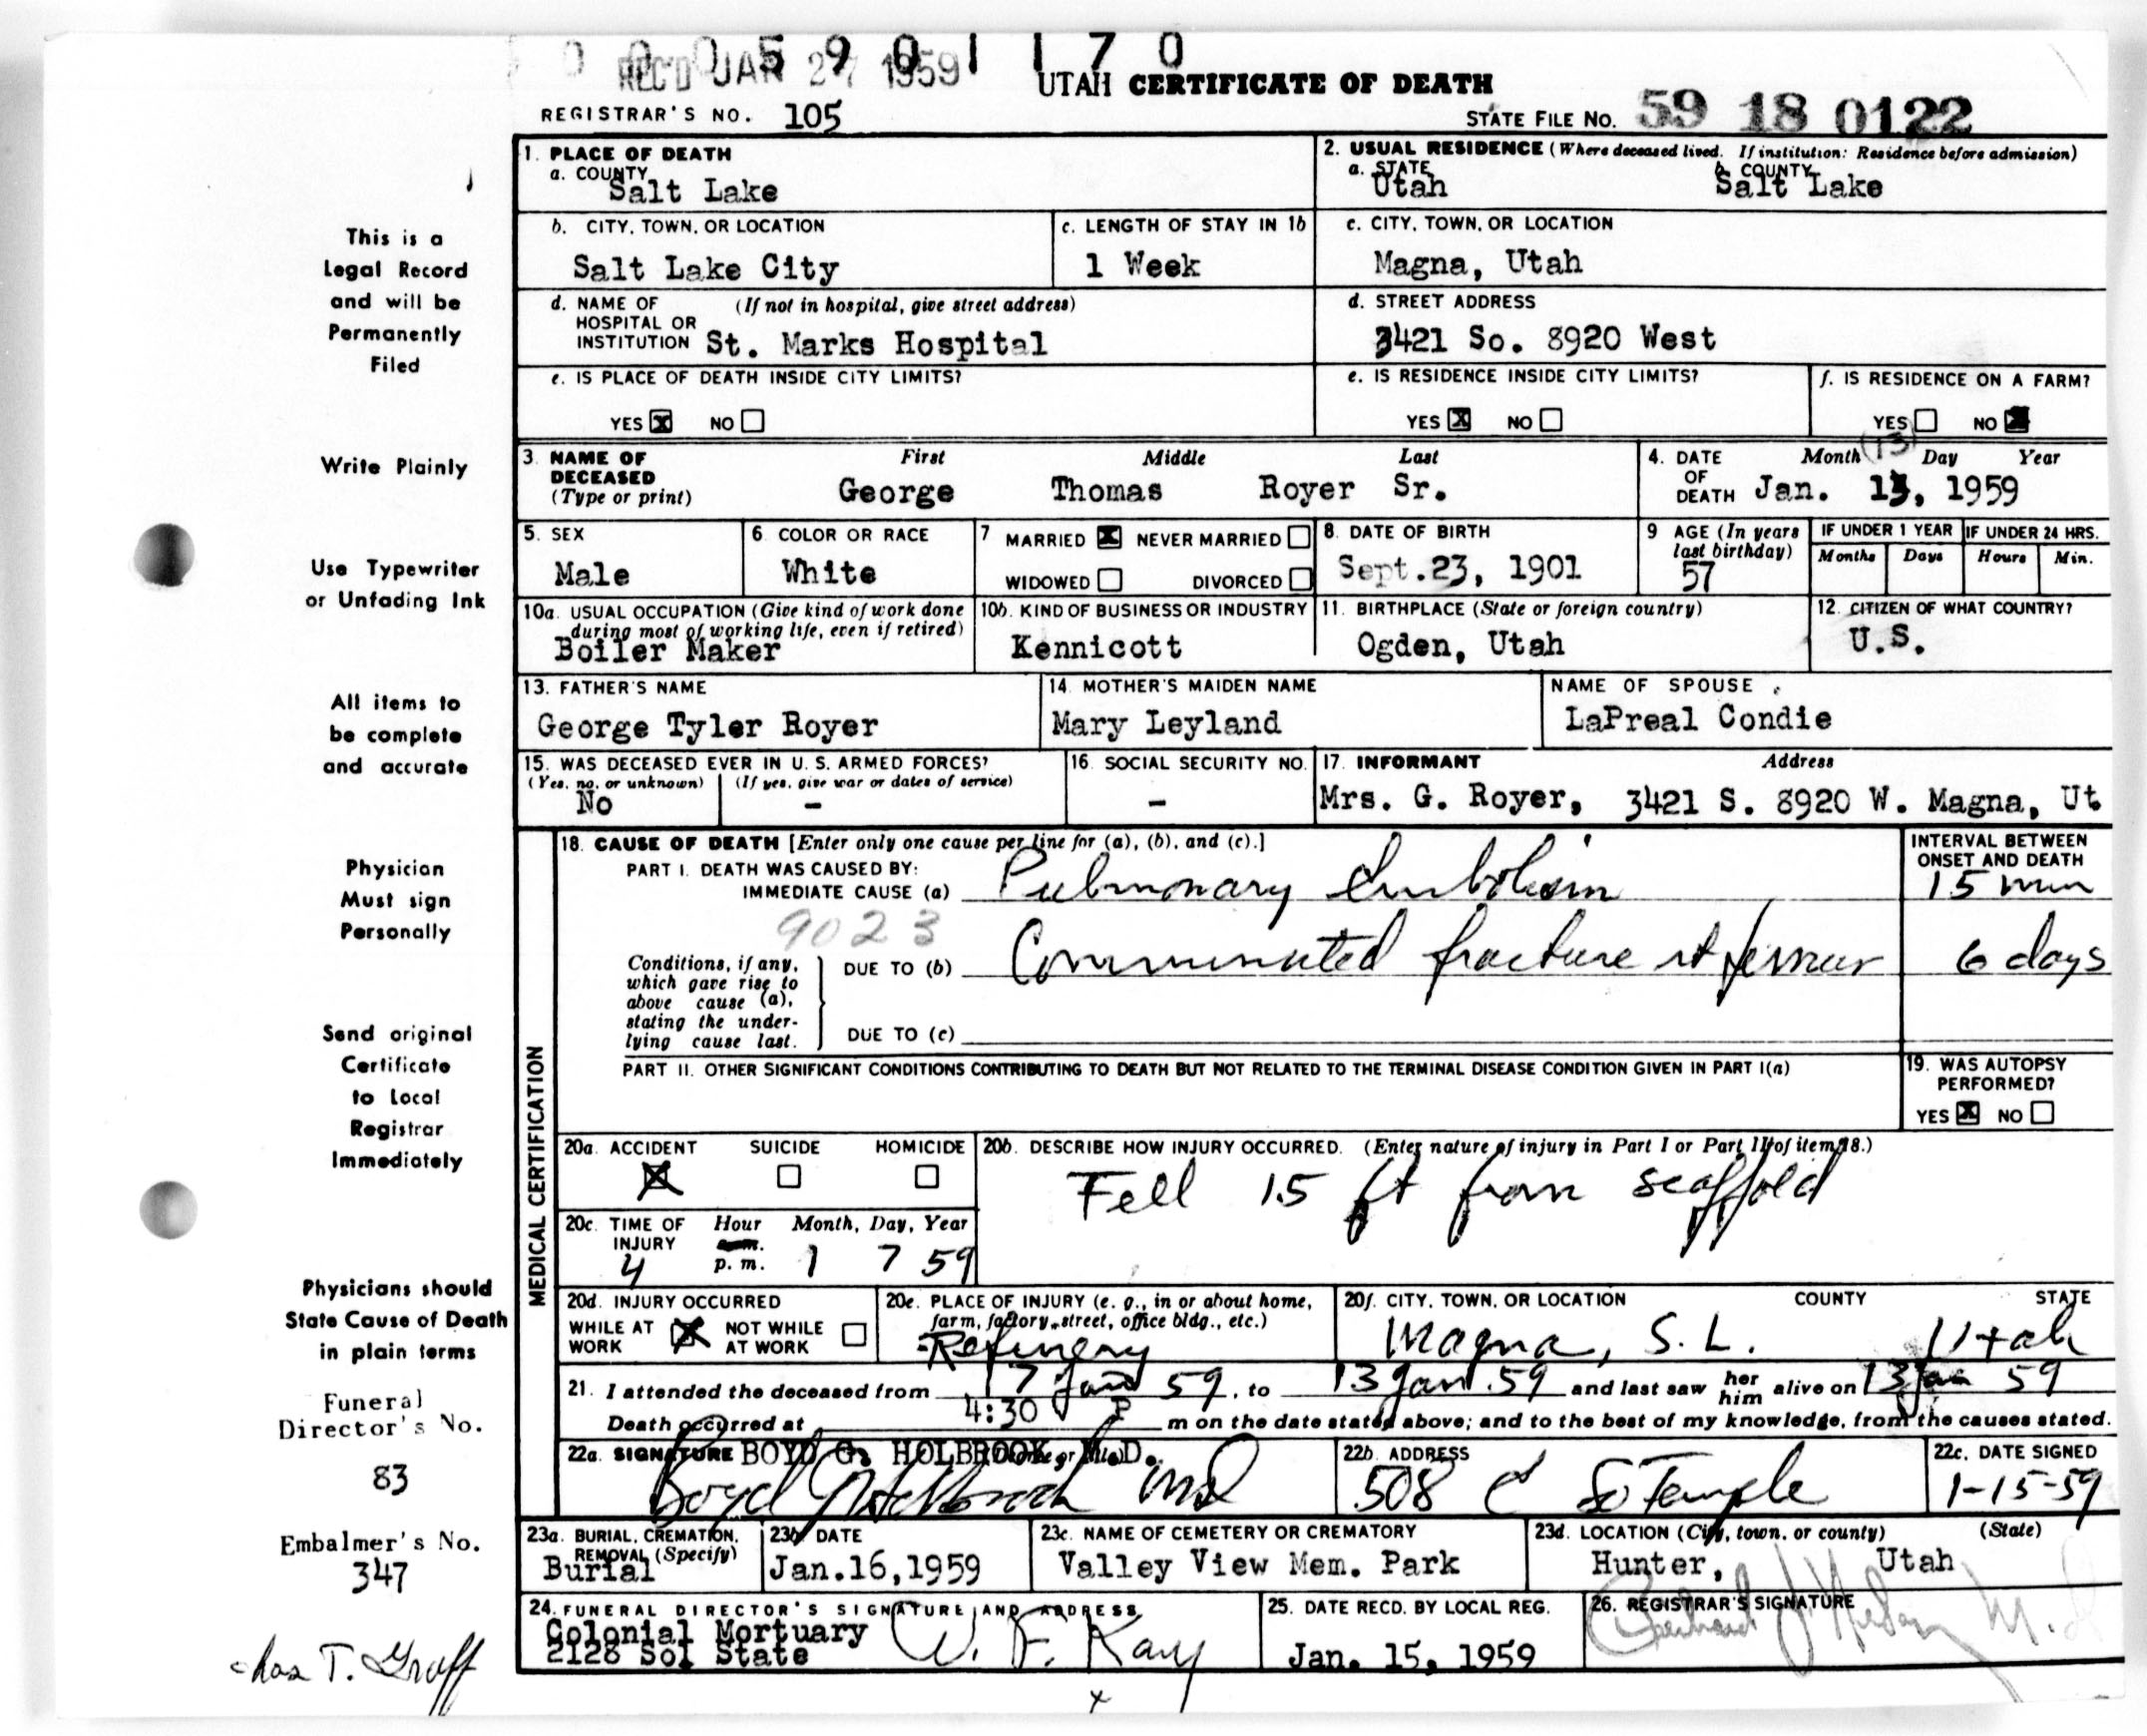 0 0 0 5 9 0 1 1 7 0
REC'D JAN 27 1959
UTAH CERTIFICATE OF DEATH
REGISTRAR'S NO. 105
STATE FILE No. 59 18 0122
1. PLACE OF DEATH
a. COUNTY
Salt Lake
2. USUAL RESIDENCE (Where deceased lived. If institution: Residence before admission)
a. STATE b. COUNTY
Utah Salt Lake
This is a
Legal Record
and will be
Permanently
Filed
b. CITY, TOWN, OR LOCATION
Salt Lake City
c. LENGTH OF STAY IN 1b
1 Week
c. CITY, TOWN, OR LOCATION
Magna, Utah
d. NAME OF (If not in hospital, give street address)
HOSPITAL OR
INSTITUTION St. Marks Hospital
d. STREET ADDRESS
3421 So. 8920 West
e. IS PLACE OF DEATH INSIDE CITY LIMITS?
YES X NO
e. IS RESIDENCE INSIDE CITY LIMITS?
YES X NO
f. IS RESIDENCE ON A FARM?
YES NO X
Write Plainly
3. NAME OF First Middle Last
DECEASED
(Type or print) George Thomas Royer Sr.
4. DATE Month (13) Day Year
OF
DEATH Jan. 13, 1959
Use Typewriter
or Unfading Ink
5. SEX
Male
6. COLOR OR RACE
White
7 MARRIED X NEVER MARRIED
WIDOWED DIVORCED
8. DATE OF BIRTH
Sept.23, 1901
9 AGE (In years
last birthday)
57
IF UNDER 1 YEAR IF UNDER 24 HRS.
Months Days Hours Min.
10a. USUAL OCCUPATION (Give kind of work done
during most of working life, even if retired)
Boiler Maker
10b. KIND OF BUSINESS OR INDUSTRY
Kennicott
11. BIRTHPLACE (State or foreign country)
Ogden, Utah
12. CITIZEN OF WHAT COUNTRY?
U.S.
All items to
be complete
and accurate
13. FATHER'S NAME
George Tyler Royer
14. MOTHER'S MAIDEN NAME
Mary Leyland
NAME OF SPOUSE
LaPreal Condie
15. WAS DECEASED EVER IN U. S. ARMED FORCES?
(Yes, no, or unknown) (If yes, give war or dates of service)
No -
16. SOCIAL SECURITY NO.
-
17. INFORMANT Address
Mrs. G. Royer, 3421 S. 8920 W. Magna, Ut
Physician
Must sign
Personally
MEDICAL CERTIFICATION
18. CAUSE OF DEATH [Enter only one cause per line for (a), (b), and (c).]
PART I. DEATH WAS CAUSED BY:
IMMEDIATE CAUSE (a) Pulmonary Embolism
9023
Conditions, if any,
which gave rise to
above cause (a),
stating the under-
lying cause last.
DUE TO (b) Comminuted fracture rt femur
DUE TO (c)
INTERVAL BETWEEN
ONSET AND DEATH
15 min
6 days
Send original
Certificate
to Local
Registrar
Immediately
PART II. OTHER SIGNIFICANT CONDITIONS CONTRIBUTING TO DEATH BUT NOT RELATED TO THE TERMINAL DISEASE CONDITION GIVEN IN PART I(a)
19. WAS AUTOPSY
PERFORMED?
YES X NO
20a. ACCIDENT SUICIDE HOMICIDE
X
20b. DESCRIBE HOW INJURY OCCURRED. (Enter nature of injury in Part I or Part II of item 18.)
Fell 15 ft from scaffold
20c. TIME OF Hour Month, Day, Year
INJURY a.m.
4 p. m. 1 7 59
Physicians should
State Cause of Death
in plain terms
20d. INJURY OCCURRED
WHILE AT X NOT WHILE
WORK AT WORK
20e. PLACE OF INJURY (e. g., in or about home,
farm, factory, street, office bldg., etc.)
Refinery
20f. CITY, TOWN, OR LOCATION COUNTY STATE
Magna, S. L. Utah
21. I attended the deceased from 7 Jan 59, to 13 Jan 59 and last saw her him alive on 13 Jan 59
Death occurred at 4:30 P m on the date stated above; and to the best of my knowledge, from the causes stated.
Funeral
Director's No.
83
22a. SIGNATURE BOYD G. HOLBROOK, M.D.
Boyd G Holbrook MD
22b. ADDRESS
508 E So Temple
22c. DATE SIGNED
1-15-59
Embalmer's No.
347
23a. BURIAL, CREMATION,
REMOVAL (Specify)
Burial
23b. DATE
Jan.16,1959
23c. NAME OF CEMETERY OR CREMATORY
Valley View Mem. Park
23d. LOCATION (City, town, or county) (State)
Hunter, Utah
24. FUNERAL DIRECTOR'S SIGNATURE AND ADDRESS
Colonial Mortuary
2128 So. State
W. F. Kay
x
25. DATE RECD. BY LOCAL REG.
Jan. 15, 1959
26. REGISTRAR'S SIGNATURE
M.D.
Chas T. Graff